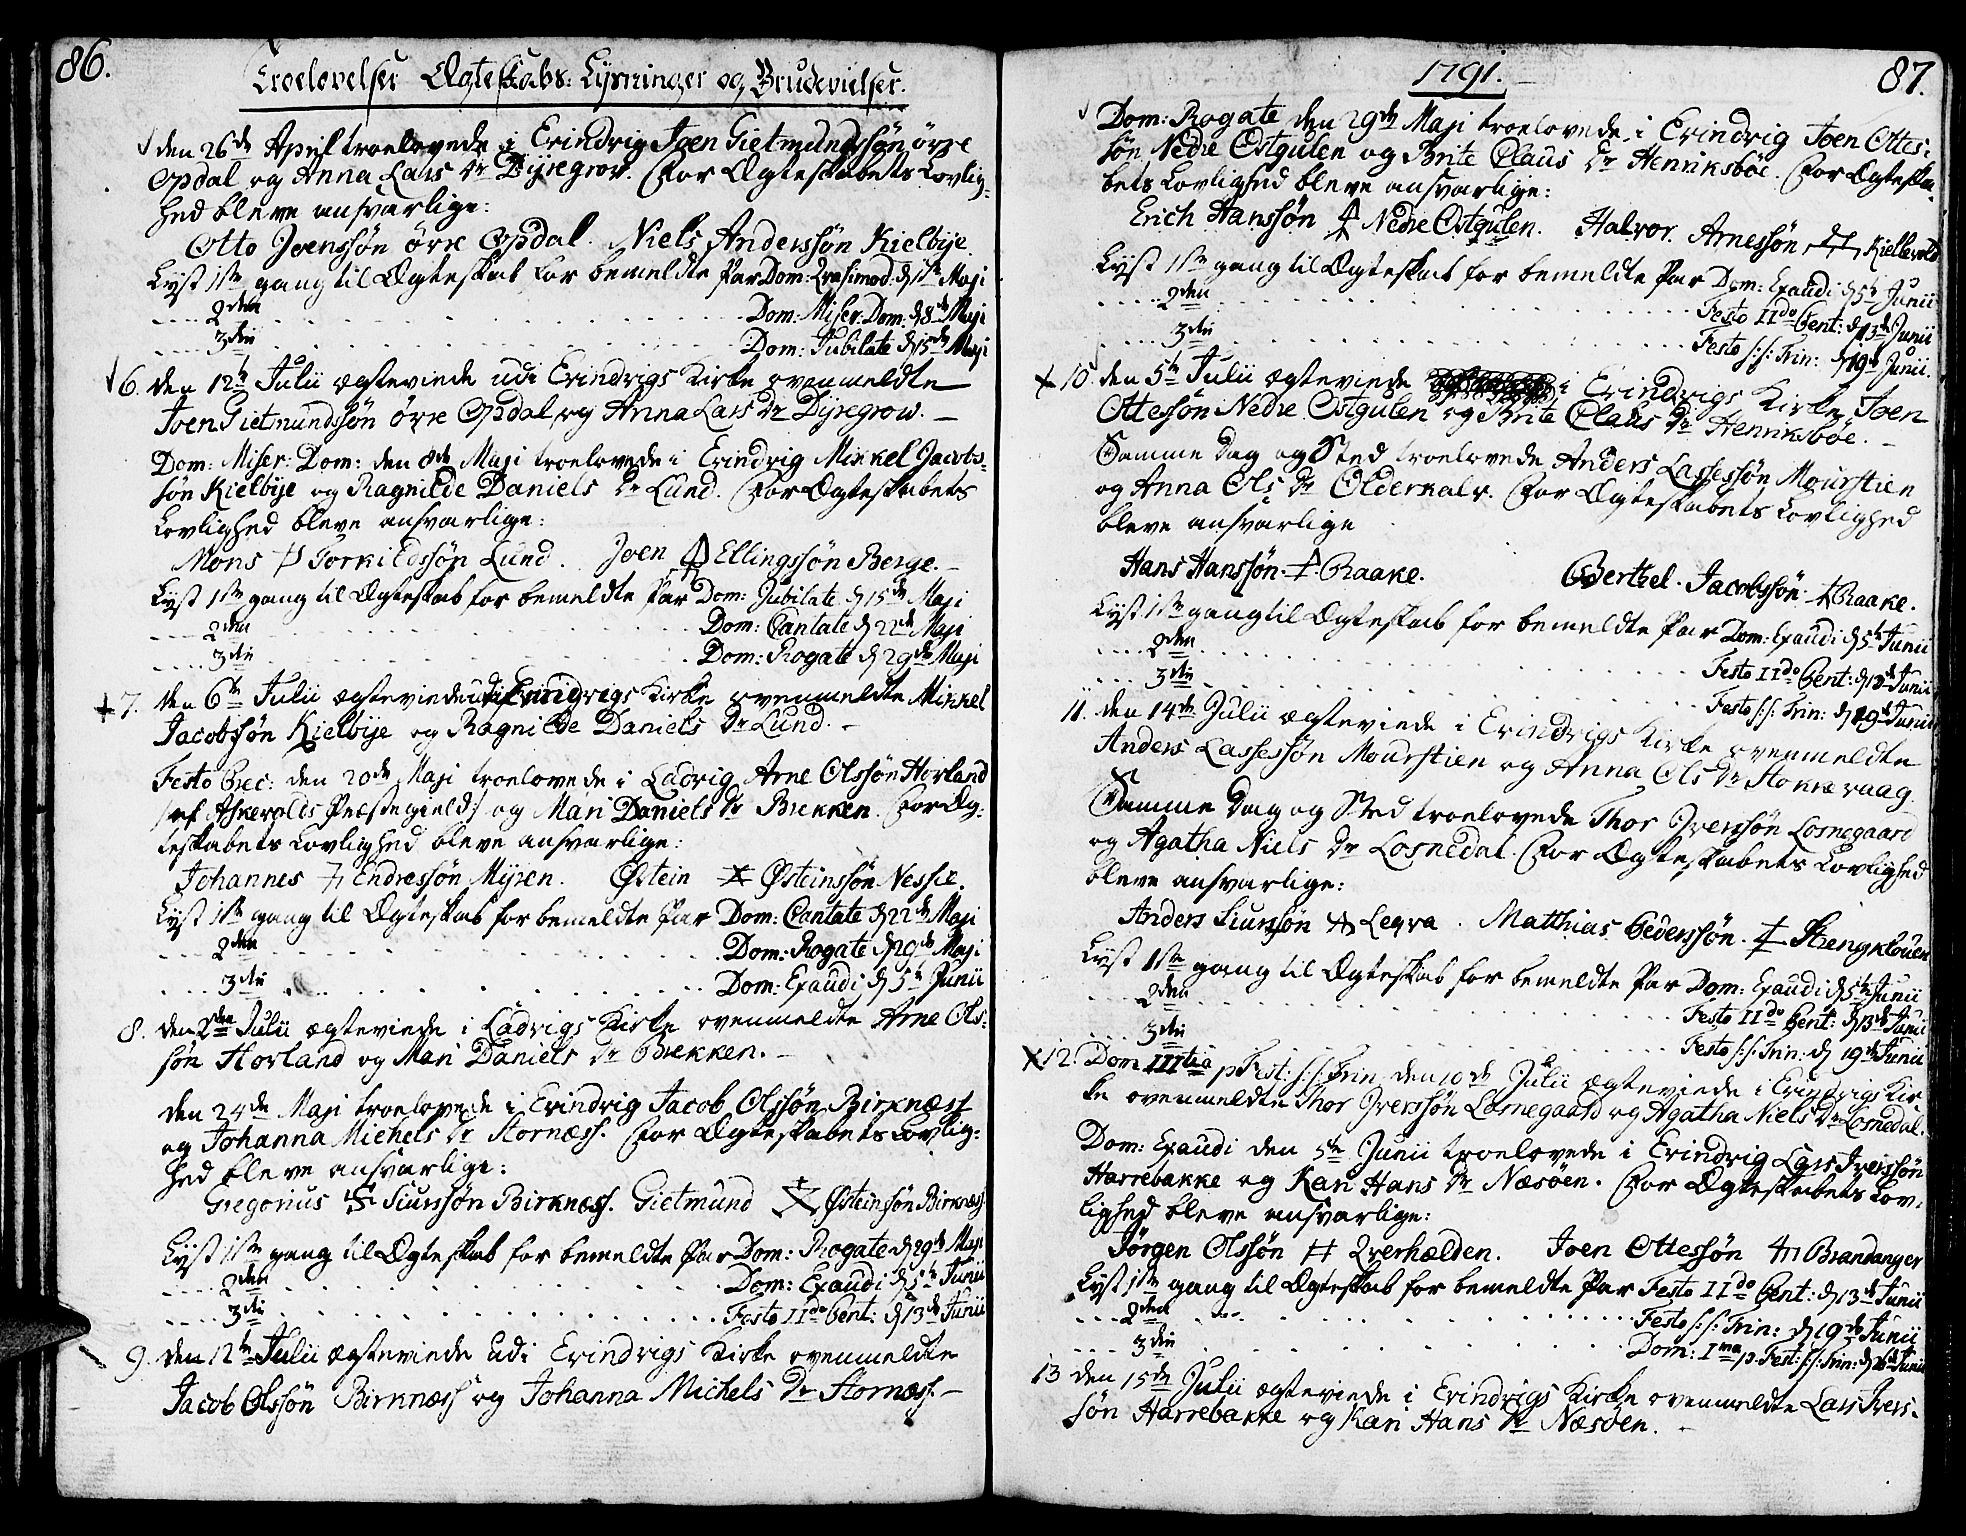 86.
Troelovelser Ægteskabs: Lysninger og Brudevielser.
den 26de April troelovede i Eivindvig Joen Gietmundssøn öfre
Opdal og Anna Lars Dr Dyregrov. For Ægteskabets Lovlig-
hed bleve ansvarlige:
Otto Joenssøn öfre Opdal. Niels Anderssøn Kielbye
Lyst 1ste gang til Ægteskab for bemeldte Par Dom: Qvasimod: d 1ste Maji
2den Dom: Miser: Dom: d 8de Maji
3die Dom: Jubilate d 15de Maji
6. den 12te Julii ægteviede udi Eivindvigs Kirke ovenmeldte
Joen Gietmundssøn öfre Opdal og Anna Lars Dr Dyregrow.
Dom: Miser: Dom: den 8de Maji troelovede i Eivindvig Mikkel Jacobs-
søn Kielbye og Ragnilde Daniels Dr Lund. For Ægteskabets
Lovlighed bleve ansvarlige:
Mons Torkildssøn Lund. Joen Ellingssøn Berge.
Lyst 1ste gang til Ægteskab for bemeldte Par Dom: Jubilate d 15de Maji
2den Dom: Cantate d 22de Maji
3die Dom: Rogate d 29de Maji
7. den 6te Julii ægteviede udi Eivindvigs Kirke ovenmeldte Mikkel
Jacobssøn Kielbye og Ragnilde Daniels Dr Lund.
Festo Prec: den 20de Maji troelovede i Ladvig Arne Olssøn Horland
af Askevolds Præstegield og Mari Daniels Dr Brekken. For Æg-
teskabets Lovlighed bleve ansvarlige:
Johannes Endressøn Myren. Østein Østeinssøn Nessie.
Lyst 1ste gang til Ægteskab for bemeldte Par Dom: Cantate d 22de Maji
2den Dom: Rogate d 29de Maji
3die Dom: Exaudi d 5te Junii
8. den 2den Julii ægteviede i Ladvigs Kirke ovenmeldte Arne Ols-
søn Horland og Mari Daniels Dr Brekken.
den 24de Maji troelovede i Eivindvig Jacob Olssøn Birknæss
og Johanna Michels Dr Stornæss. For Ægteskabets Lovlig-
hed bleve ansvarlige:
Gregorius Siurssøn Birknæss. Gietmund Østeinssøn Birknæss
Lyst 1ste gang til Ægteskab for bemeldte Par Dom: Rogate d 29de Maji
2den Dom: Exaudi d 5te Junii
3die Festo IIdo Pent: d 13de Junii
9. den 12te Julii ægteviede udi Eivindvigs Kirke ovenmeldte
Jacob Olssøn Birknæss og Johanna Michels Dr Stornæss.
1791.
87.
Dom: Rogate den 29de Maji troelovede i Eivindvig Joen Ottes-
søn Nedre Ostgulen og Brite Claus Dr Henriksbøe. For Ægteska-
bets Lovlighed bleve ansvarlige:
Erich Hanssøn Nedre Ostgulen. Halvor Arnessøn Kiellevold
Lyst 1ste gang til Ægteskab for bemeldte Par Dom: Exaudi d 5te Junii
2den Festo IIdo Pent: d 13de Junii
3die Festo s: s: Trin: d 19de Junii.
10. den 5te Julii ægteviede i Eivindvigs Kirke Joen
Ottessøn Nedre Ostgulen og Brite Claus Dr Henriksbøe.
Samme dag og Sted troelovede Anders Lassessøn Mourstien
og Anna Ols Dr Olderkalv. For Ægteskabets Lovlighed
bleve ansvarlige
Hans Hanssøn Raake. Berthel Jacobssøn Raake.
Lyst 1ste gang til Ægteskab for bemeldte Par Dom: Exaudi d 5te Junii
2den Festo IIdo Pent: d 13de Junii
3die Festo s: s: Trin: d 19de Junii
11. den 14de Julii ægteviede i Eivindvigs Kirke ovenmeldte
Anders Lassessøn Mourstien og Anna Ols Dr Stokkevaag.
Samme dag og Sted troelovede Thor Iverssøn Losnegaard
og Agatha Niels Dr Losnedal. For Ægteskabets Lovlighed
bleve ansvarlige:
Anders Siurssøn Leqva. Matthias Pederssøn Stengklouen
Lyst 1ste gang til Ægteskab for bemeldte Par Dom: Exaudi d 5te Junii
2den Festo IIdo Pent: d 13de Junii
3die Festo s: s: Trin: d 19de Junii
12. Dom IIItia p Fest: s: s: Trin. den 10de Julii ægteviede i Eivindvigs Kir
ke ovenmeldte Thor Iverssøn Losnegaard og Agatha Niels Dr Losnedal.
Dom: Exaudi den 5te Junii troelovede i Eivindvig Lars Iverssøn
Harrebakke og Kari Hans Dr Næsøen. For Ægteskabets Lov-
lighed bleve ansvarlige:
Jørgen Olssøn Qverhælden. Joen Ottessøn Brandanger
Lyst 1ste gang til Ægteskab for bemeldte Par Festo IIdo Pent: d 13de Junii
2den Festo s: s: Trin: d 19de Junii
3die Dom: Ima p. Fest: s: s: Trin: d 26de Junii
13 den 15de Julii ægteviede i Eivindvigs Kirke ovenmeldte Lars Ivers-
søn Harrebakke og Kari Hans Dr Næsøen.